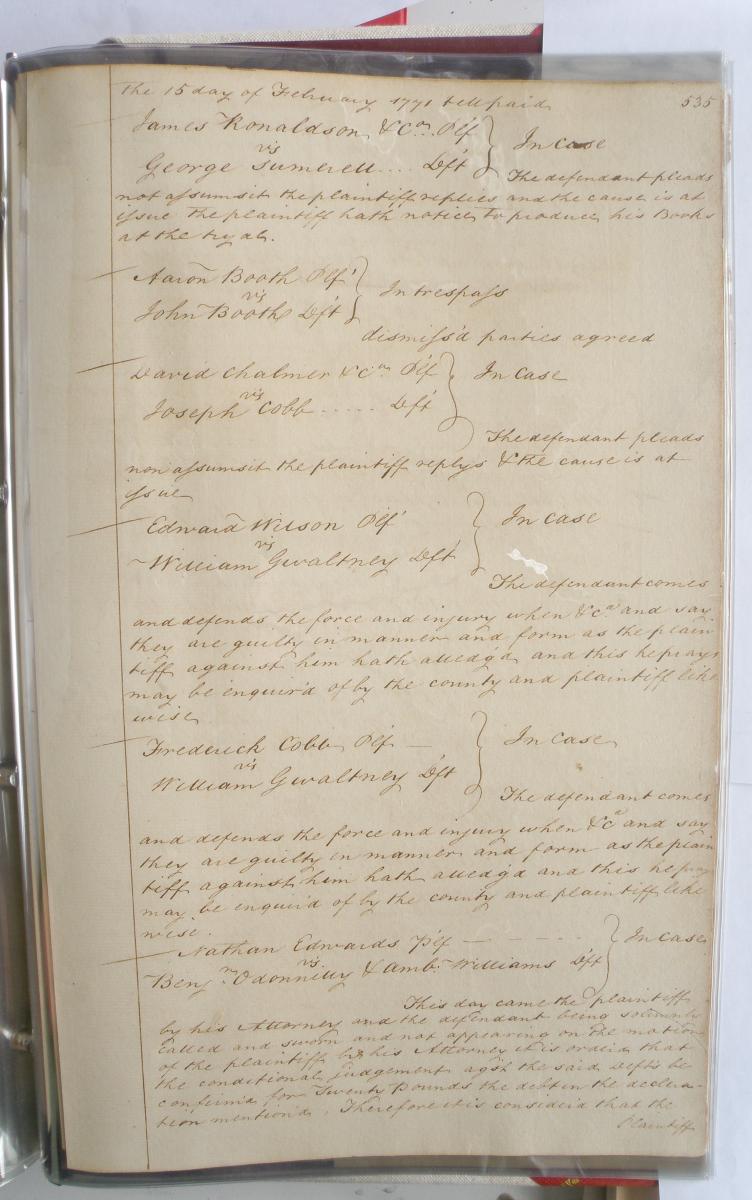 The 15 day of February 1771 till paid
535
James Ronaldson & Co. Plf
vs
In Case
George Sumerell .... Dft
The defendant pleads
not assumsit the plaintiff replies and the cause is at
issue the plaintiff hath notice to produce his Books
at the tryal.
Aaron Booth Plf
vs
In trespass
John Booth Dft
dismiss'd parties agreed
David Chalmer & Co. Plf
In Case
vs
Joseph Cobb ..... Dft
The defendant pleads
non assumsit the plaintiff replys & the cause is at
issue
Edward Wilson Plf
In Case
vs
William Gwaltney Dft
The defendant comes
and defends the force and injury when &ca and say
they are guilty in manner and form as the plain
tiff against him hath alledg'd and this he prays
may be enquir'd of by the county and plaintiff like
wise
Frederick Cobb Plf —
In Case
vs
William Gwaltney Dft
The defendant comes
and defends the force and injury when &ca and say
they are guilty in manner and form as the plain
tiff against him hath alledg'd and this he pray
may be enquir'd of by the county and plaintiff like
wise.
Nathan Edwards Plf — - - -
In Case
vs
Benjn Odonnilly & Amb: Williams Dft
This day came the plaintiff
by his Attorney and the defendant being solemnly
called and sworn and not appearing on the motion
of the plaintiff by his Attorney it is order'd that
the conditional judgement agst the said Defts be
confirm'd for Twenty Pounds the debt in the declera-
tion mention'd. Therefore it is consider'd that the
Plaintiff